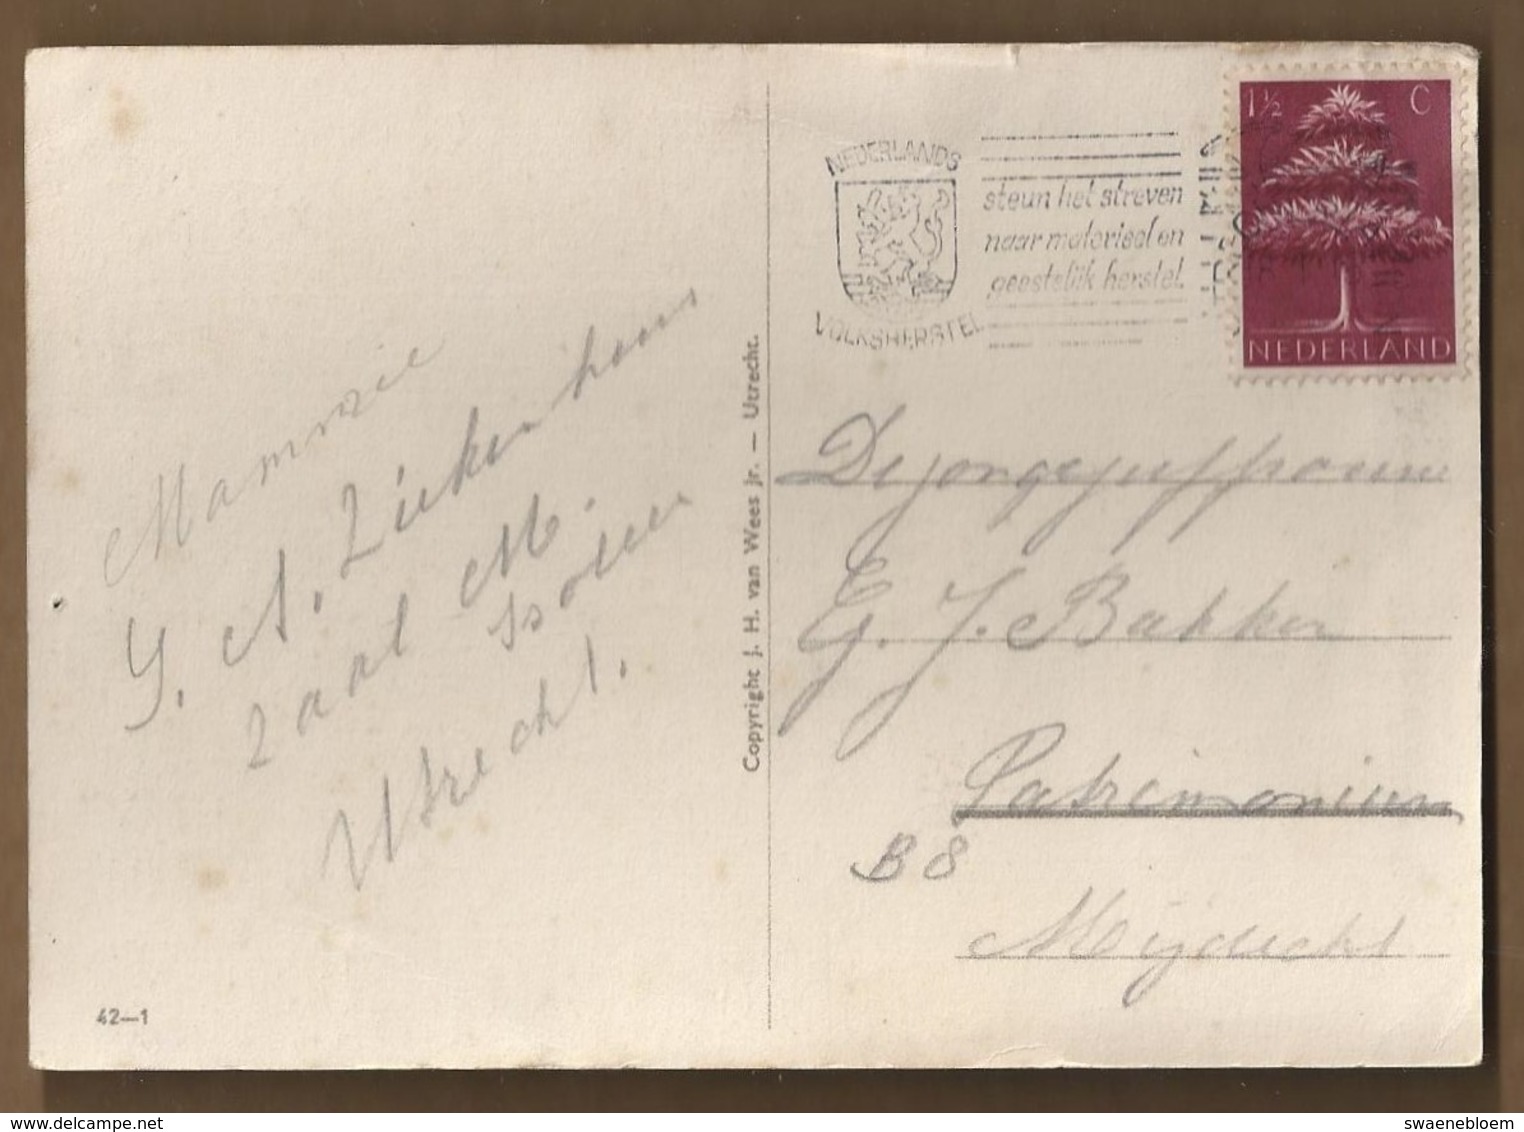 Mammie
S. A. Ziekenhuus
zaal M.
Utrecht.
42—1
Copyright J. H. van Wees Jr. — Utrecht.
NEDERLANDS
VOLKSHERSTEL
steun het streven
naar materieel en
geestelijk herstel.
1½ C
NEDERLAND
De jongejuffrouw
G. J. Bakker
Patrimonium
B 8
Mijdrecht
www.delcampe.net
swaenebloem